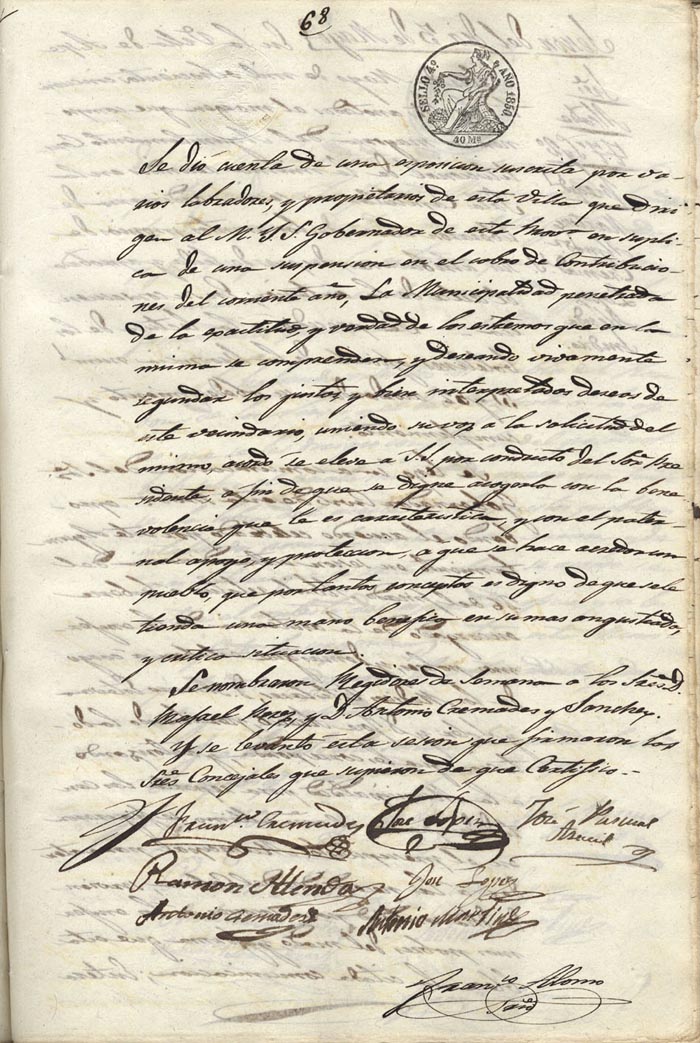 68
SELLO 4º AÑO 1850.
40 Ms
Se dió cuenta de una esposicion suscrita por va-
rios labradores, y propietarios de esta Villa que diri-
gen al M. I. S. Gobernador de esta Provª en supli-
ca de una suspension en el cobro de Contribucio-
nes del corriente año, La Municipalidad penetrada
de la exactitud, y verdad de los estremos que en la
misma se comprenden, y deseando vivamente
segundar los justos, y bien interpretados deseos de
este vecindario, uniendo su voz à la solicitud del
mismo, acordó se eleve a S.S. por conducto del Sor. Pre-
sidente, a fin de que se digne acogerla con la bene
volencia que le es caracteristica, y con el pater-
nal apoyo, y proteccion, a que se hace acredor un
pueblo, que por tantos conceptos es digno de que se le
tienda una mano benefica en su mas angustiada,
y critica situacion.
Se nombraron Regidores de Semana a los Sres. D.
Rafael Perez, y D. Antonio Cremades y Sanchez.
Y se levantó esta sesion que firmaron los
Sres. Concejales que supieron de que Certifico.-
Franco. Cremades José
José Pascual
Ramon Alenda José Lopez
Antonio Cremades Antonio Martinez
Franco. Alonso
Srio